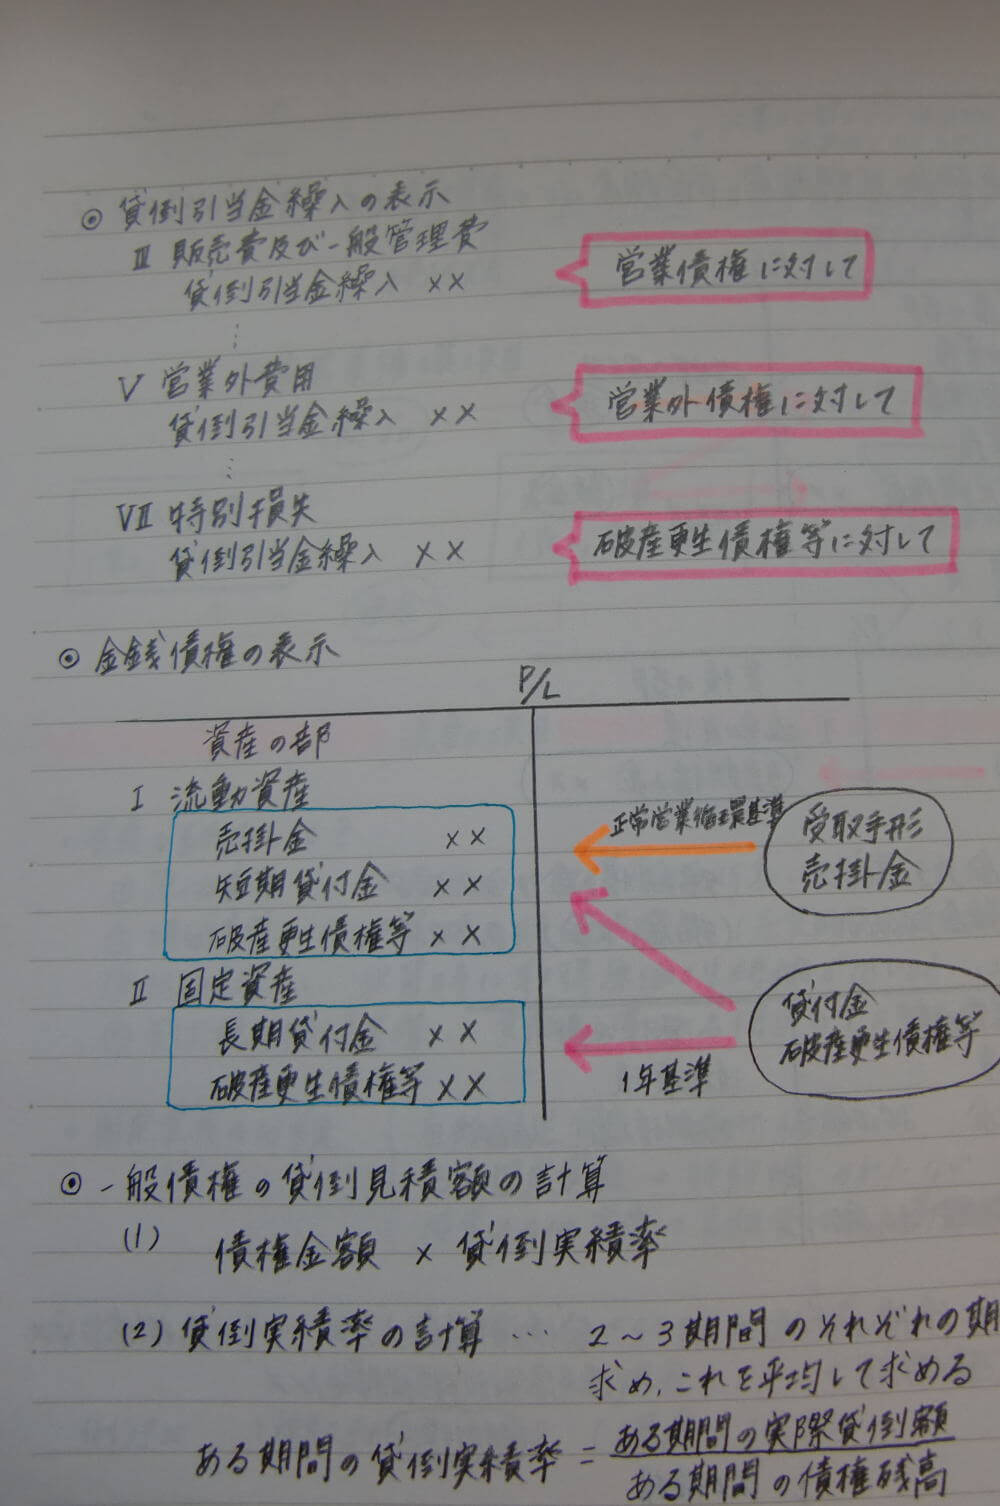 ◎ 貸倒引当金繰入の表示
Ⅲ 販売費及び一般管理費
貸倒引当金繰入 ××
営業債権に対して
⋮
Ⅴ 営業外費用
貸倒引当金繰入 ××
営業外債権に対して
⋮
Ⅶ 特別損失
貸倒引当金繰入 ××
破産更生債権等に対して
◎ 金銭債権の表示
P/L
資産の部
Ⅰ 流動資産
売掛金 ××
短期貸付金 ××
破産更生債権等 ××
Ⅱ 固定資産
長期貸付金 ××
破産更生債権等 ××
正常営業循環基準
受取手形
売掛金
貸付金
破産更生債権等
1年基準
◎ 一般債権の貸倒見積額の計算
(1) 債権金額 × 貸倒実績率
(2) 貸倒実績率の計算 … 2～3期間のそれぞれの期
求め、これを平均して求める
ある期間の貸倒実績率 = ある期間の実際貸倒額
ある期間の債権残高